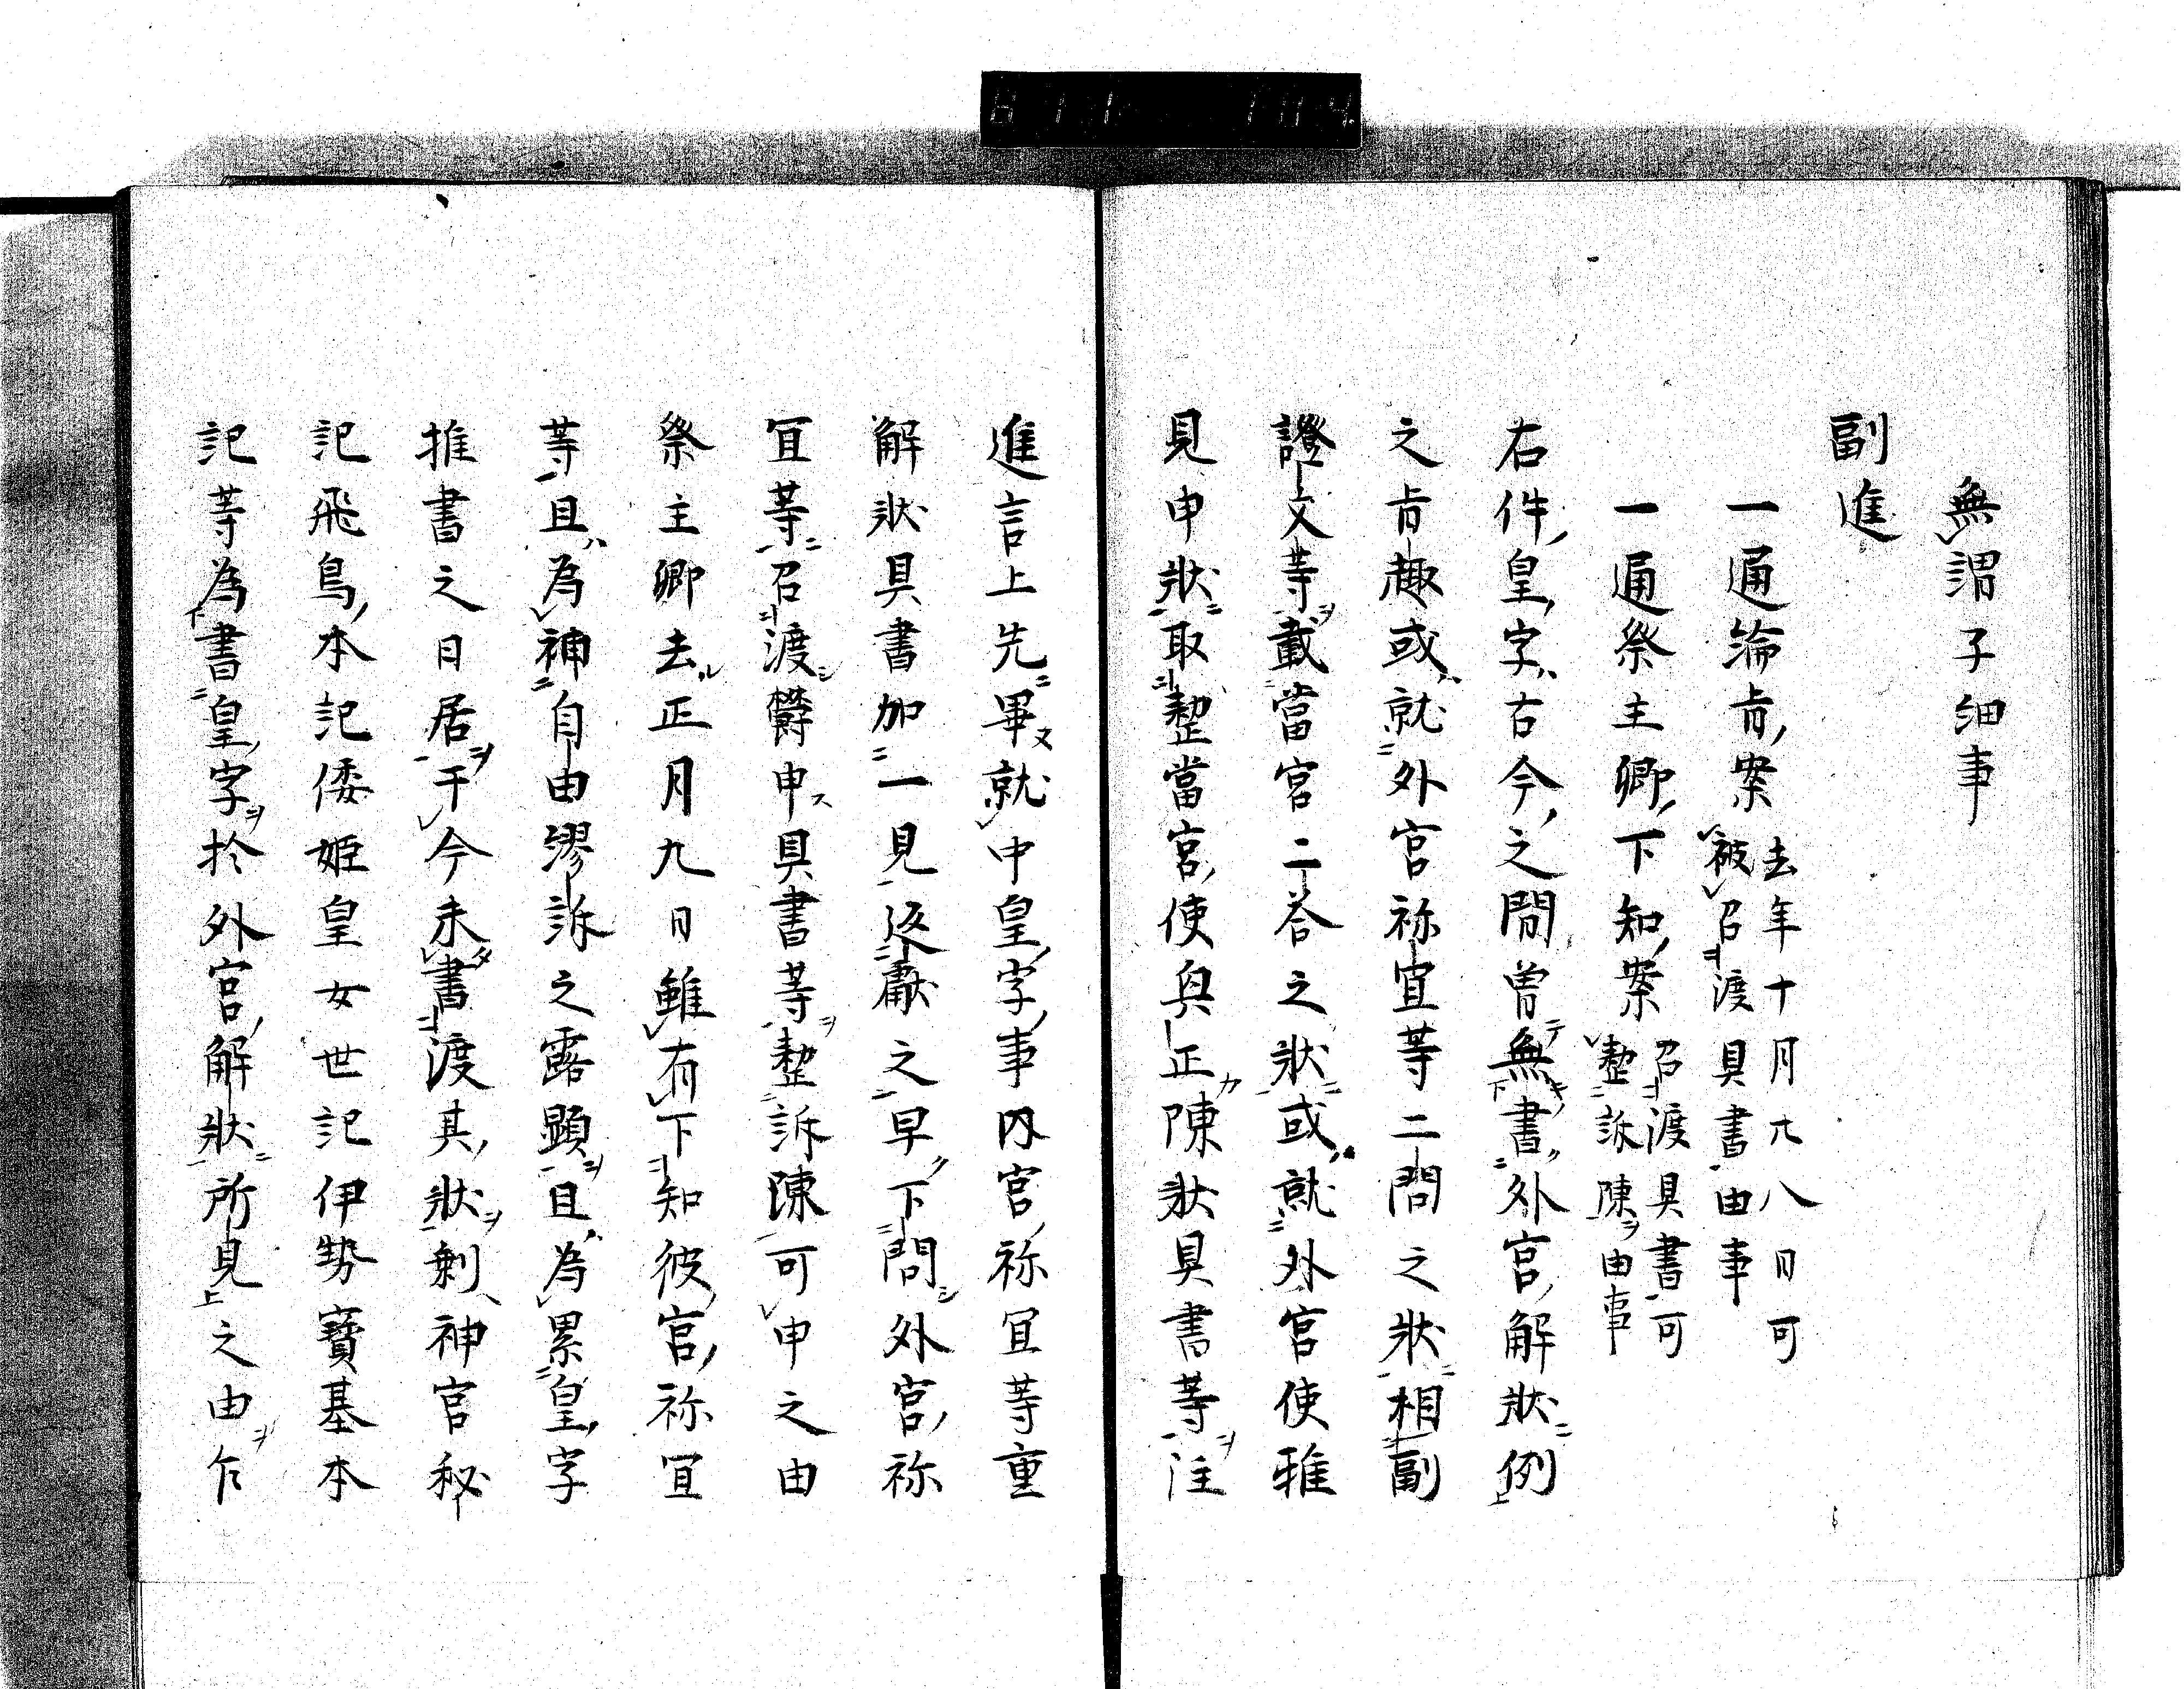 無謂子細事
副進
一通綸旨案 去年十月廿八日可
被召渡具書由事
一通祭主卿下知案 召渡具書可
整訴陳由事
右件皇字古今之間曽無書外宮解状例
之旨趣或就外宮祢宜等二問之状相副
證文等載當宮二荅之状或就外宮使雅
見申状取整當宮使与正陳状具書等注
進言上先畢就中皇字事内宮祢冝等重
解状具書加一見返獻之早下問外宮祢
冝等召渡欝申具書等整訴陳可申之由
祭主卿去正月九日雖有下知彼宮祢冝
等且為神自由謬訴之露顕且為累皇字
推書之日居于今未書渡其状剰神宮秘
記飛鳥本記倭姫皇女世記伊勢寶基本
記等為書皇字於外宮解状所見之由乍